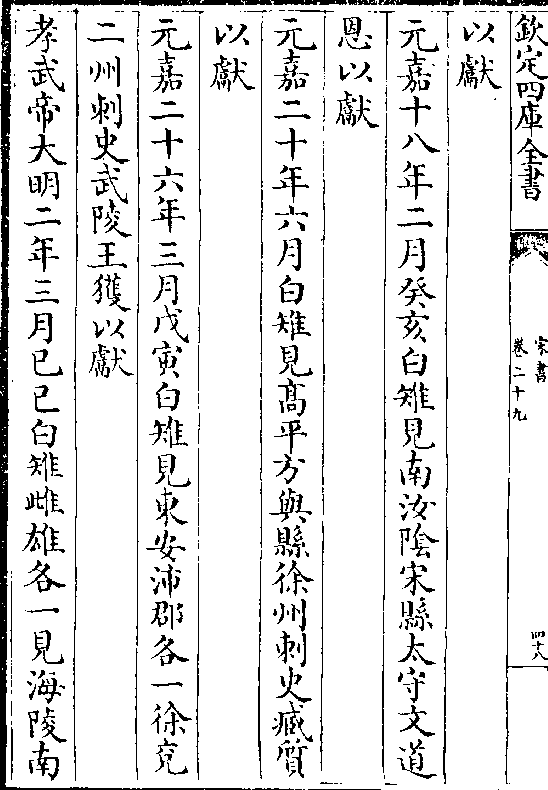 欽定四庫全書
宋書
卷二十九
四十八
以獻
元嘉十八年二月癸亥白雉見南汝陰宋縣太守文道
恩以獻
元嘉二十年六月白雉見髙平方與縣徐州刺史臧質
以獻
元嘉二十六年三月戊寅白雉見東安沛郡各一徐兗
二州刺史武陵王獲以獻
孝武帝大明二年三月己巳白雉雌雄各一見海陵南